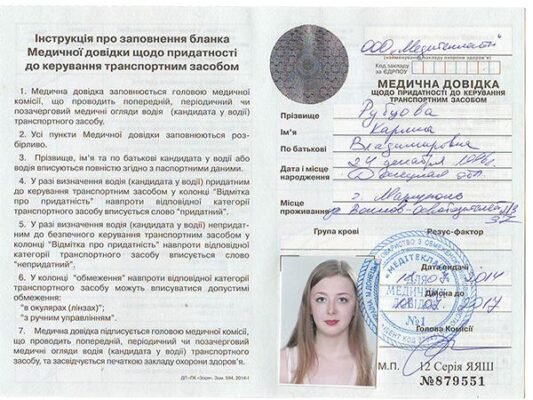 Інструкція про заповнення бланка
Медичної довідки щодо придатності
до керування транспортним засобом
1. Медична довідка заповнюється головою медичної
комісії, що проводить попередній, періодичний чи
позачерговий медичні огляди водія (кандидата у водії)
транспортного засобу.
2. Усі пункти Медичної довідки заповнюються роз-
бірливо.
3. Прізвище, ім'я та по батькові кандидата у водії або
водія вписуються повністю згідно з паспортними даними.
4. У разі визначення водія (кандидата у водії) придатним
до керування транспортним засобом у колонці "Відмітка
про придатність" навпроти відповідної категорії
транспортного засобу вписується слово "придатний".
5. У разі визначення водія (кандидата у водії) непридат-
ним до безпечного керування транспортним засобом у
колонці "Відмітка про придатність" навпроти відповідної
категорії транспортного засобу вписується слово
"непридатний".
6. У колонці "обмеження" навпроти відповідної категорії
транспортного засобу можуть вписуватися допустимі
обмеження:
"в окулярах (лінзах)";
"з ручним управлінням".
7. Медична довідка підписується головою медичної комісії,
що проводить попередній, періодичний чи позачерговий
медичні огляди водія (кандидата у водії) транспортного
засобу, та засвідчується печаткою закладу охорони здоров'я.
ООО
Код закладу
за ЄДРПОУ
МЕДИЧНА ДОВІДКА
ЩОДО ПРИДАТНОСТІ ДО КЕРУВАННЯ
ТРАНСПОРТНИМ ЗАСОБОМ
Прізвище
Ім'я Карина
По батькові Владимировна
Дата і місце 24 декабря
народження Донецкая обл.
Місце г. Мариуполь
проживання
Група крові Резус-фактор
Дата видачі
2014
Дійсна до
2017
Голова Комісії
М.П. 12 Серія ЯЯШ
№879551